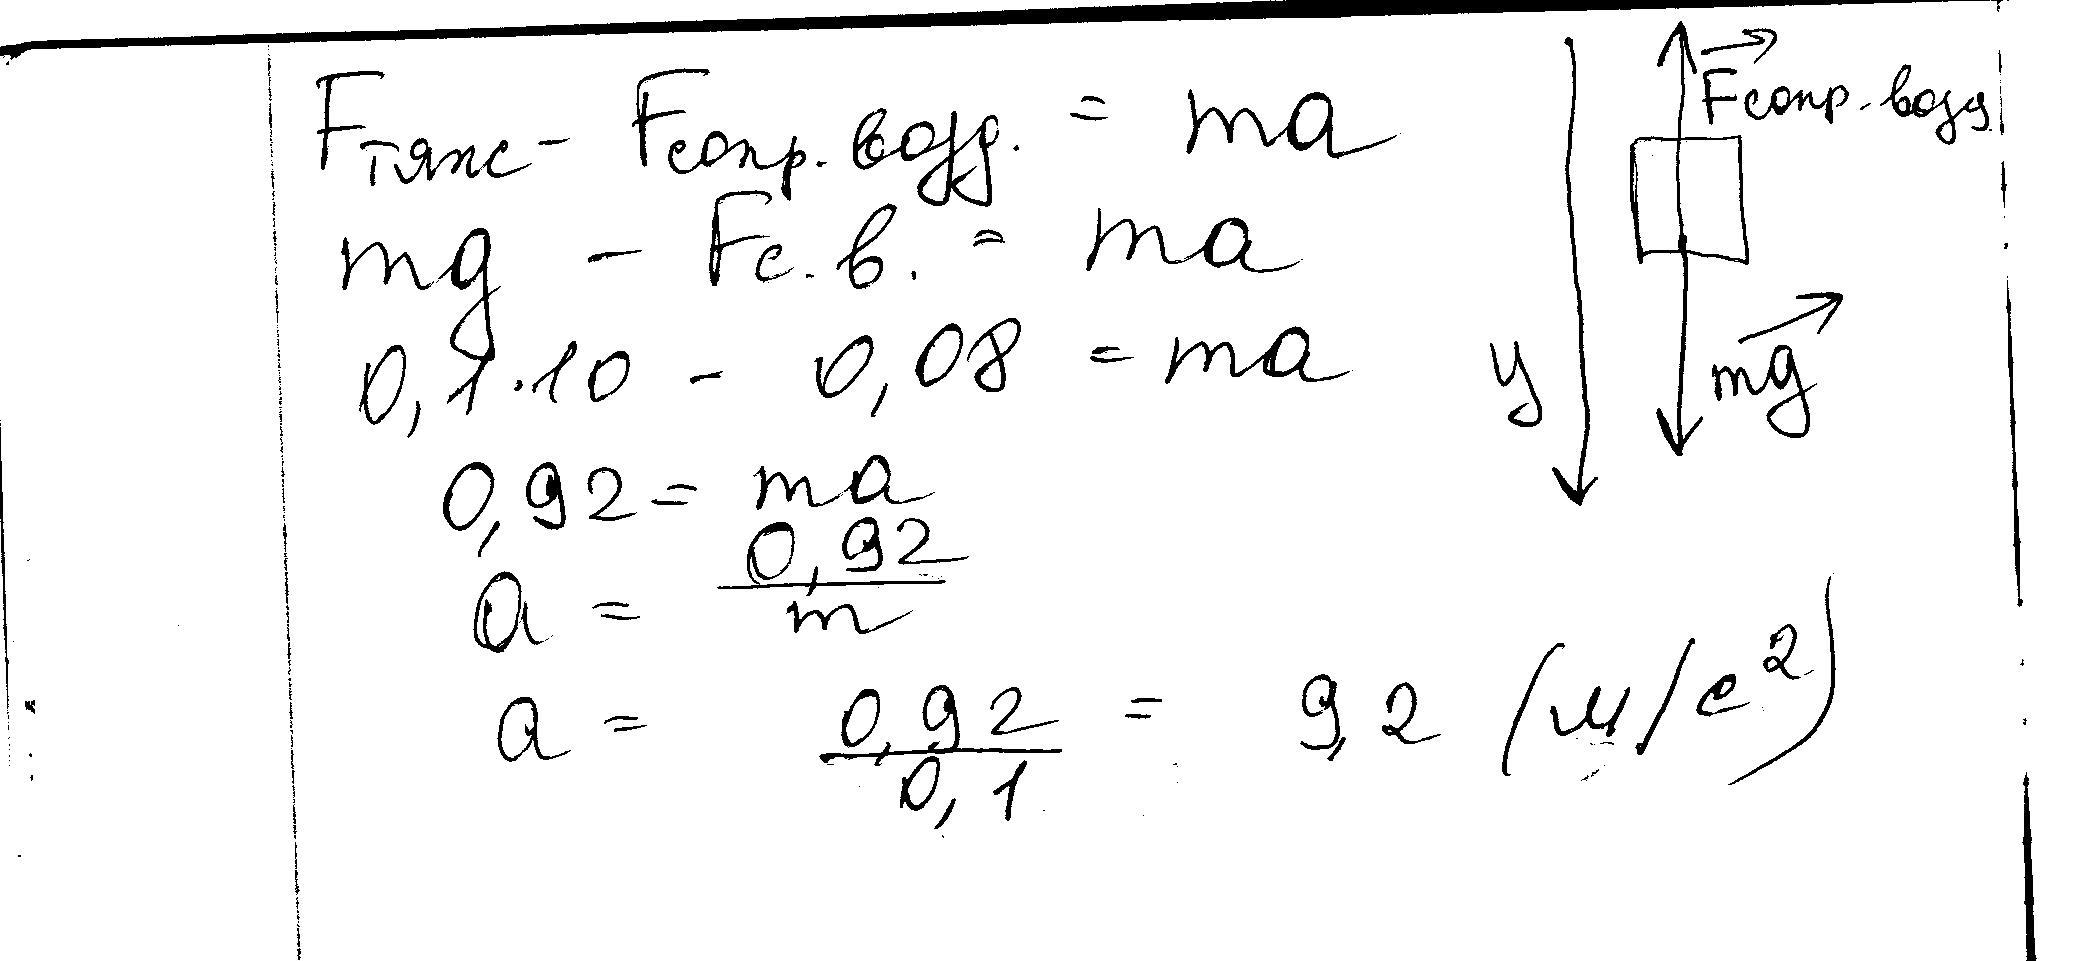 Fтяж - Fсопр. возд. = ma
mg - Fс.в. = ma
0,1·10 - 0,08 = ma
0,92 = ma
a = 0,92/m
a = 0,92/0,1 = 9,2 (м/с²)
Fсопр. возд.
y
mg